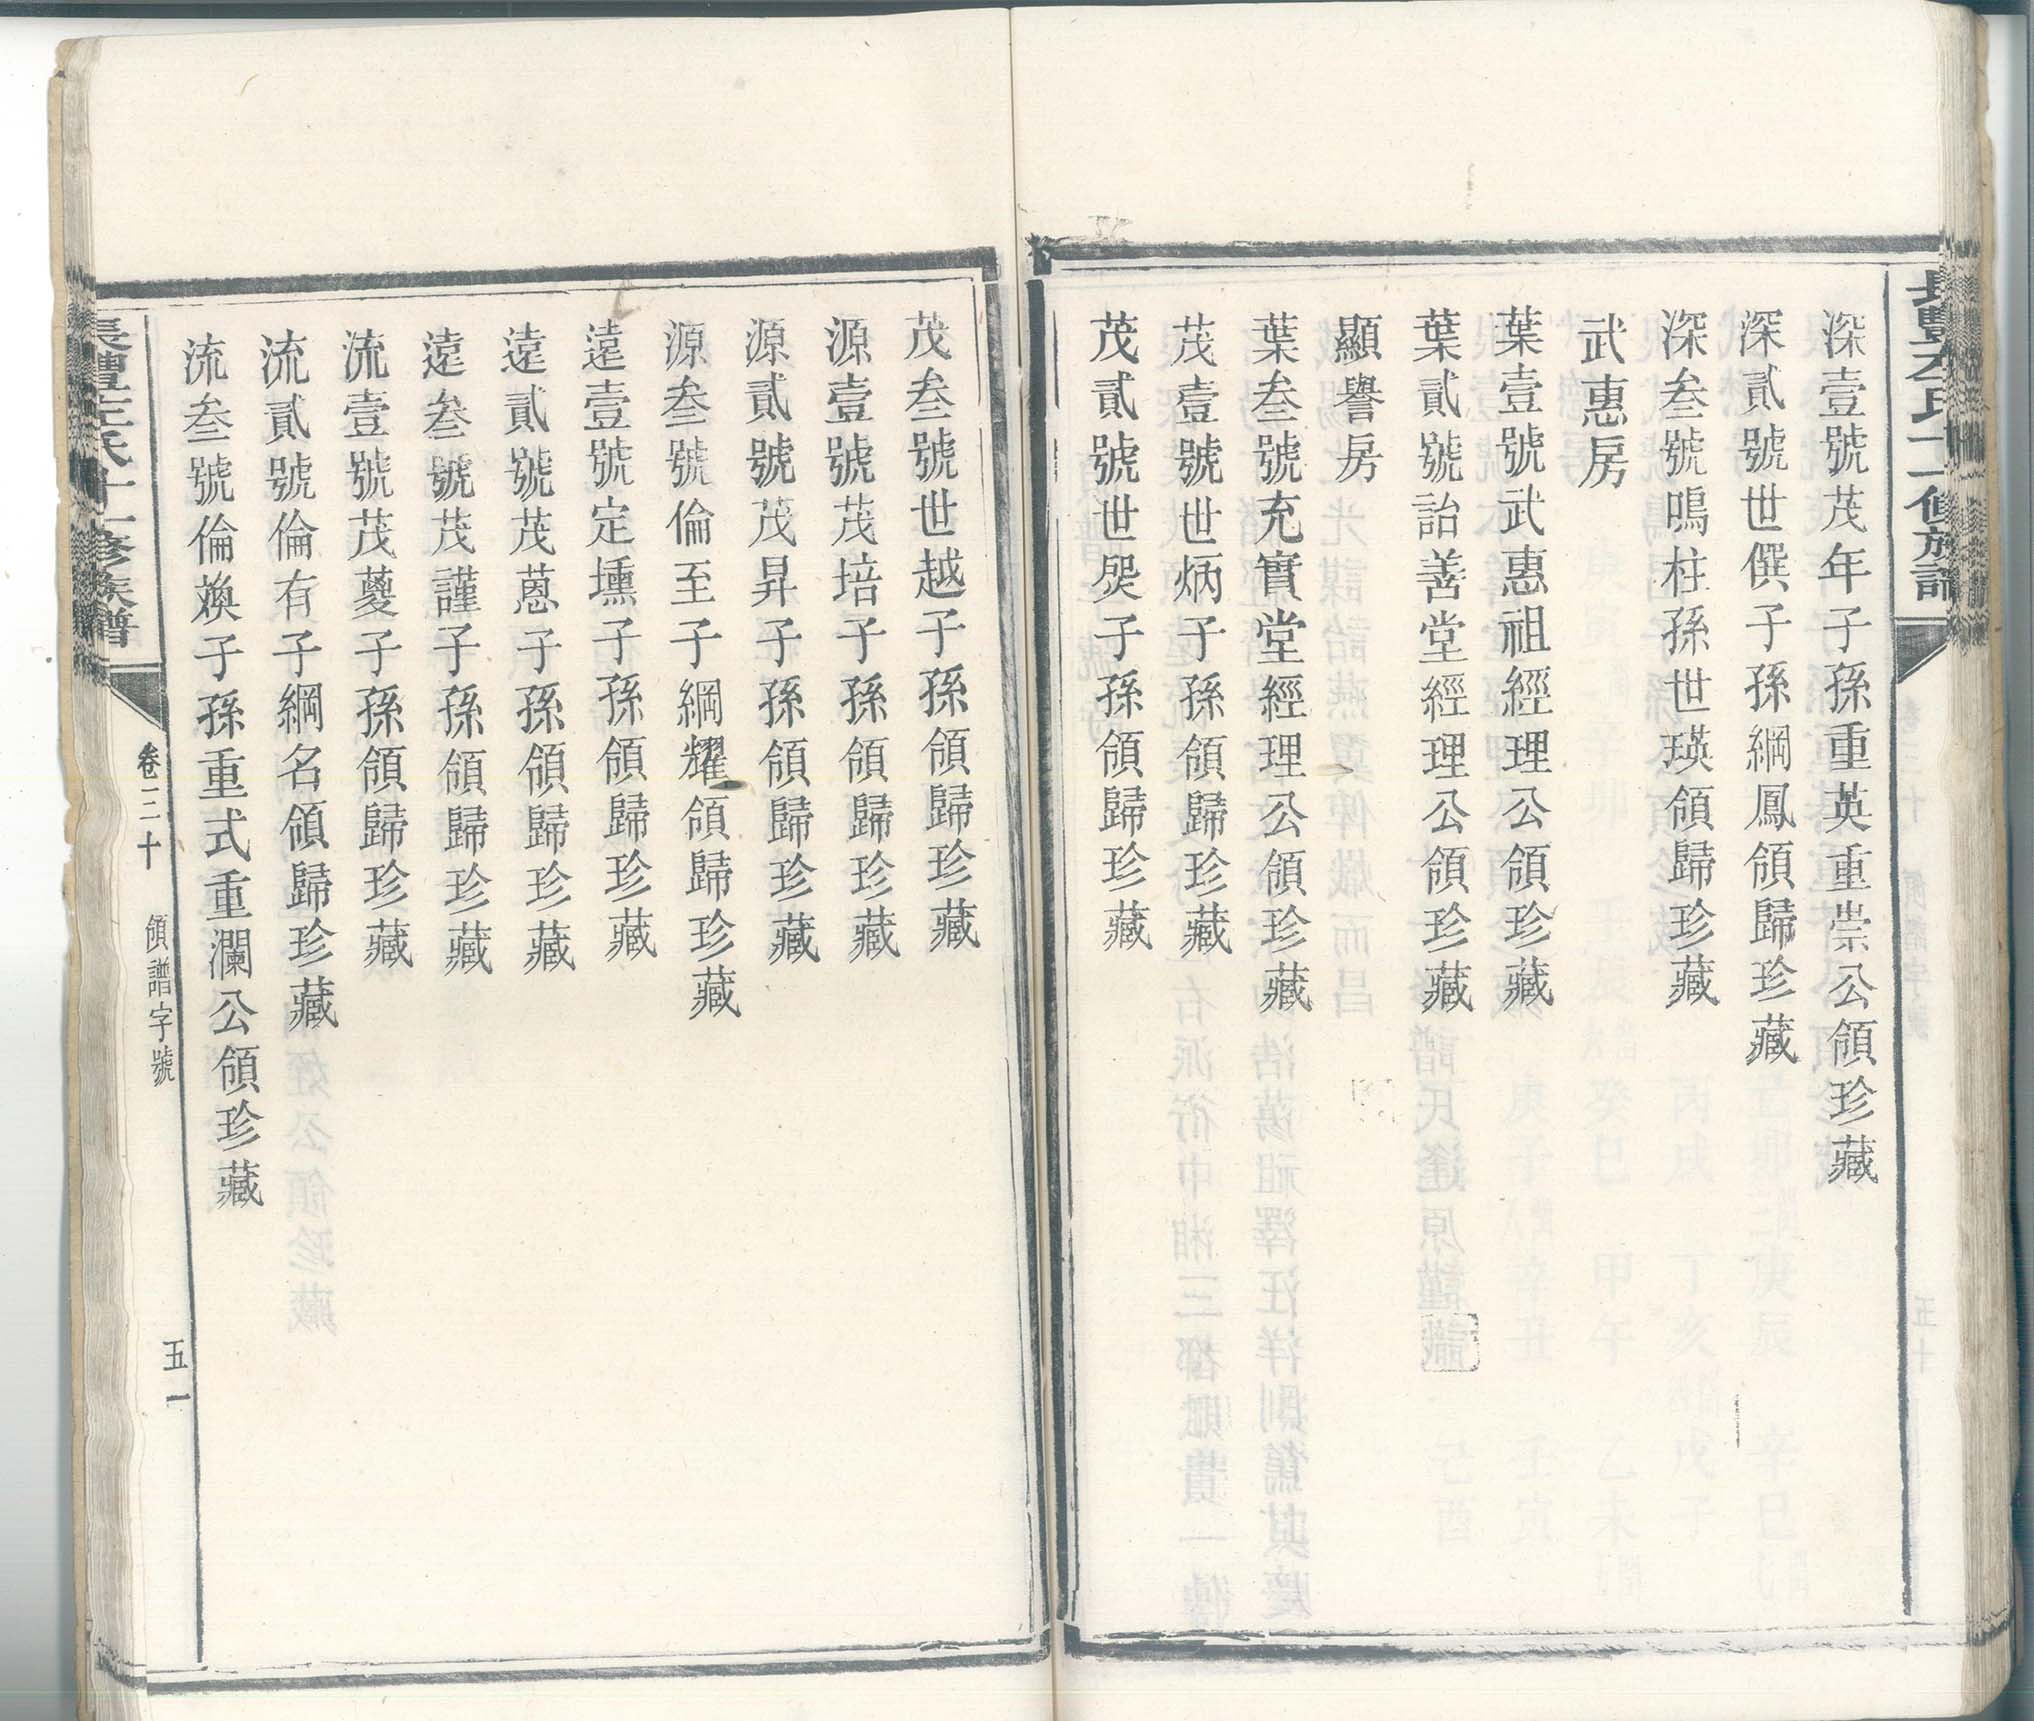 深壹號茂年子孫重英重崇公領珍藏
深貳號世僎子孫綱鳳領歸珍藏
深叁號鳴柱孫世瑛領歸珍藏
武惠房
葉壹號武惠祖經理公領珍藏
葉貳號詒善堂經理公領珍藏
葉叁號充實堂經理公領珍藏
顯譽房
茂壹號世炳子孫領歸珍藏
茂貳號世煚子孫領歸珍藏
茂叁號世越子孫領歸珍藏
源壹號茂培子孫領歸珍藏
源貳號茂昇子孫領歸珍藏
源叁號倫至子綱耀領歸珍藏
遠壹號定壎子孫領歸珍藏
遠貳號茂蒽子孫領歸珍藏
遠叁號茂謹子孫領歸珍藏
流壹號茂夔子孫領歸珍藏
流貳號倫有子綱名領歸珍藏
流叁號倫煥子孫重式重瀾公領珍藏
氏十一修族譜
卷三十
領譜字號
五一